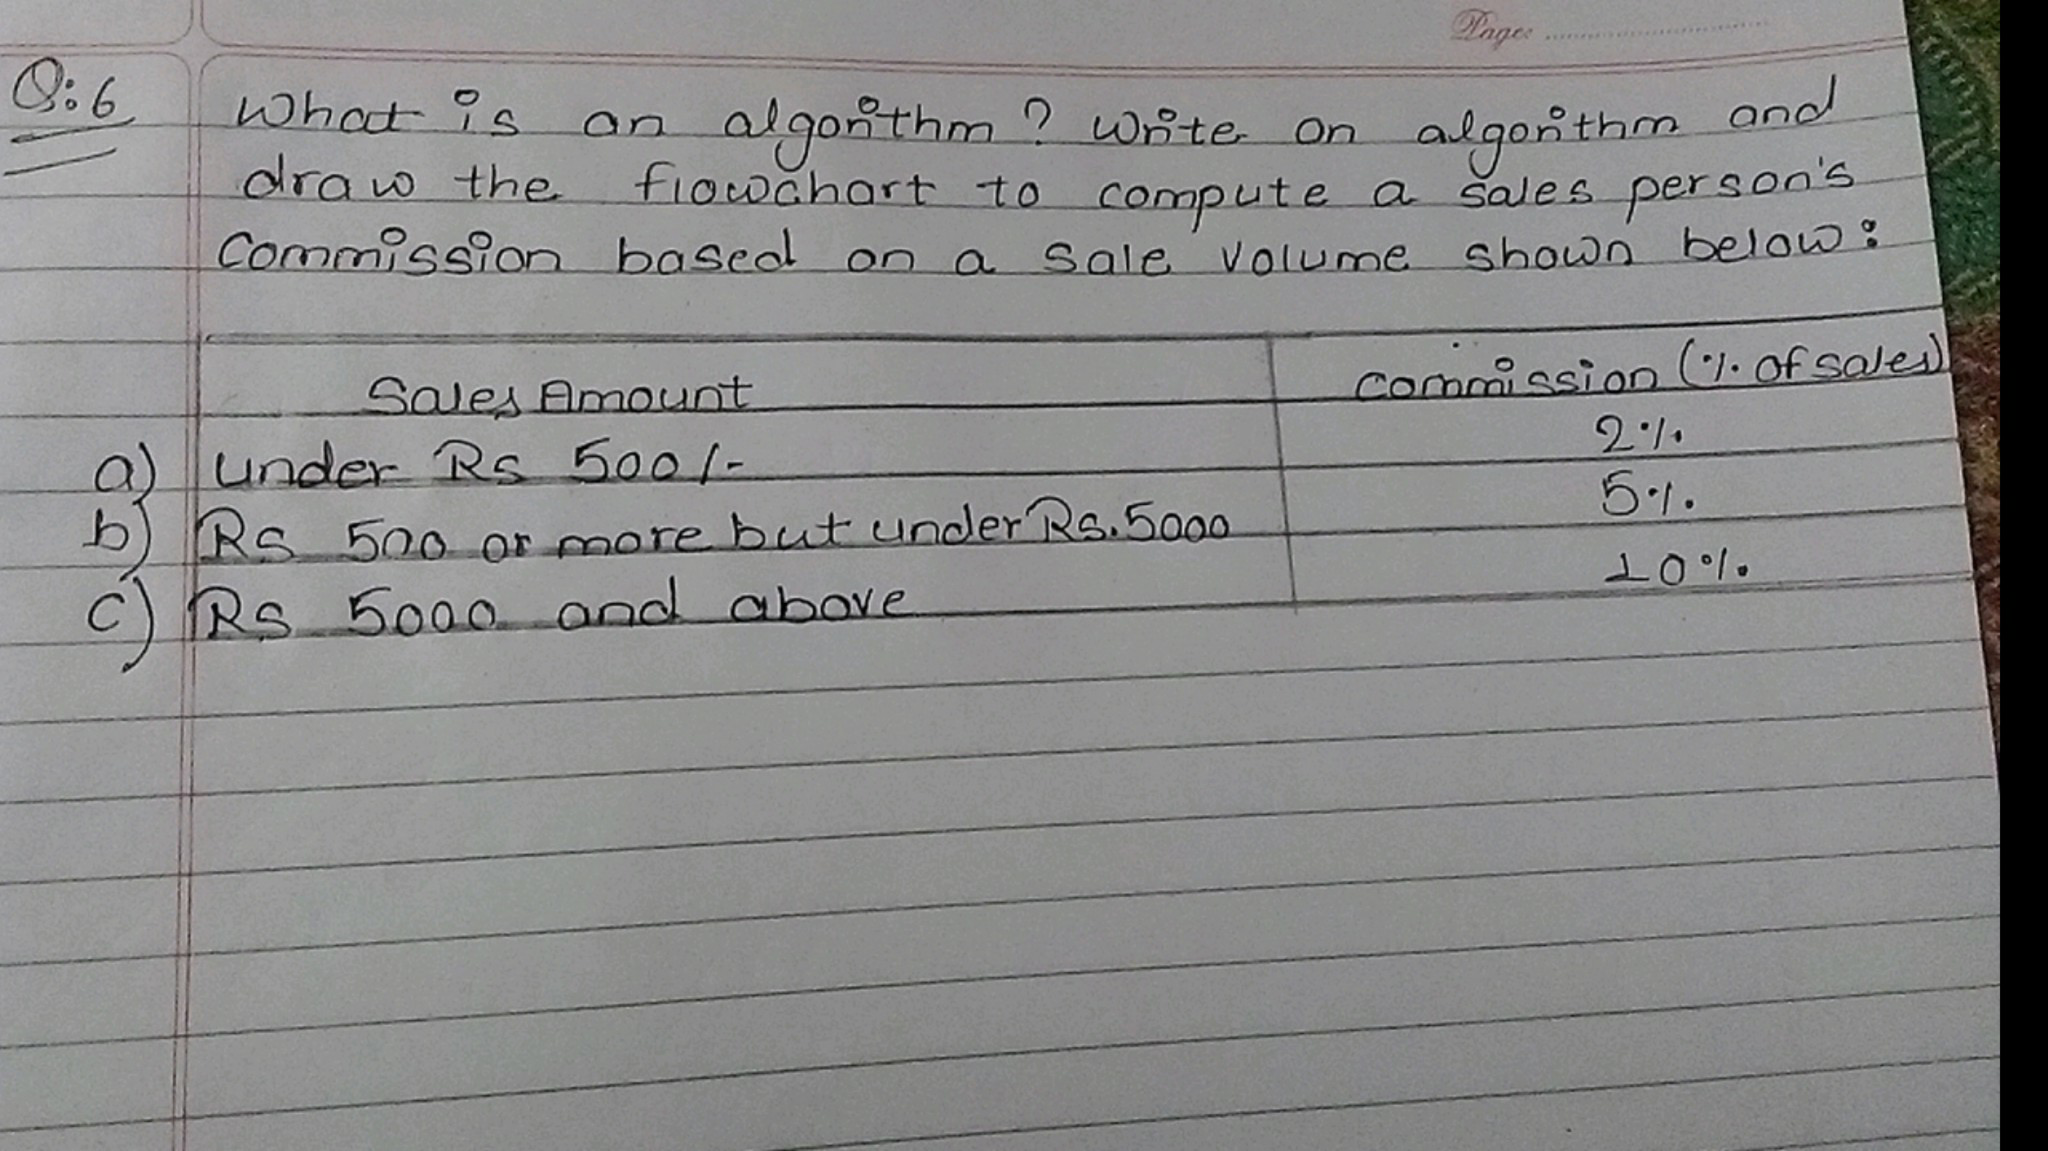 Page:
Q:6 What is an algorithm? Write an algorithm and
draw the flowchart to compute a sales person's
commission based on a sale volume shown below:
Sales Amount commission (% of sales)
a) under Rs 500/- 2%
b) Rs 500 or more but under Rs.5000 5%
c) Rs 5000 and above 10%